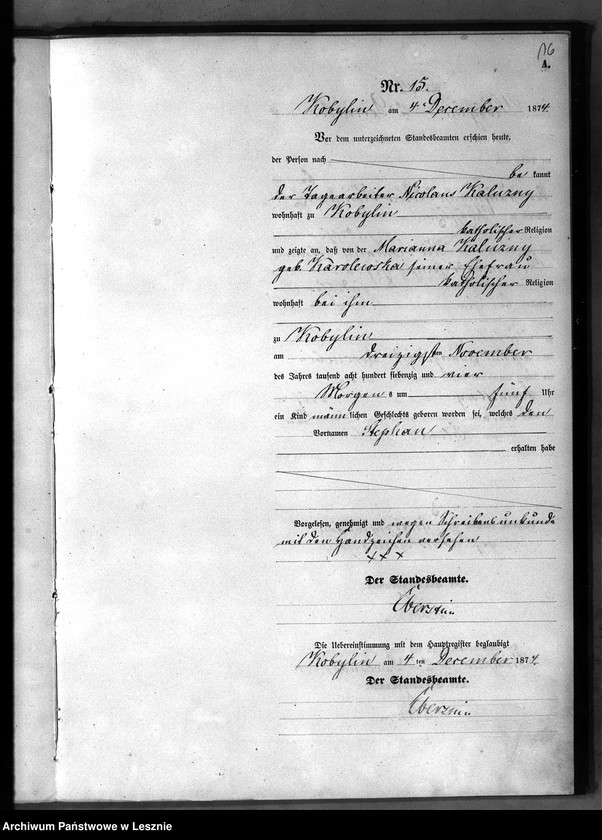 16
A.
Nr. 15.
Kobylin am 4 December 1874.
Vor dem unterzeichneten Standesbeamten erschien heute,
der Person nach
be kannt
der Tagearbeiter Nicolaus Kaluzny
wohnhaft zu Kobylin
katholischer Religion
und zeigte an, daß von der Marianna Kaluzny
geb. Karolewska seiner Ehefrau
katholischer Religion
wohnhaft bei ihm
zu Kobylin
am dreizigsten November
des Jahres tausend acht hundert siebenzig und vier
Morgens um fünf Uhr
ein Kind männlichen Geschlechts geboren worden sei, welches den
Vornamen Stephan
erhalten habe
Vorgelesen, genehmigt und wegen Schreibensunkunde
mit den Handzeichen versehen
+ + +
Der Standesbeamte.
Die Uebereinstimmung mit dem Hauptregister beglaubigt
Kobylin am 4 ten December 1874.
Der Standesbeamte.
Archiwum Państwowe w Lesznie